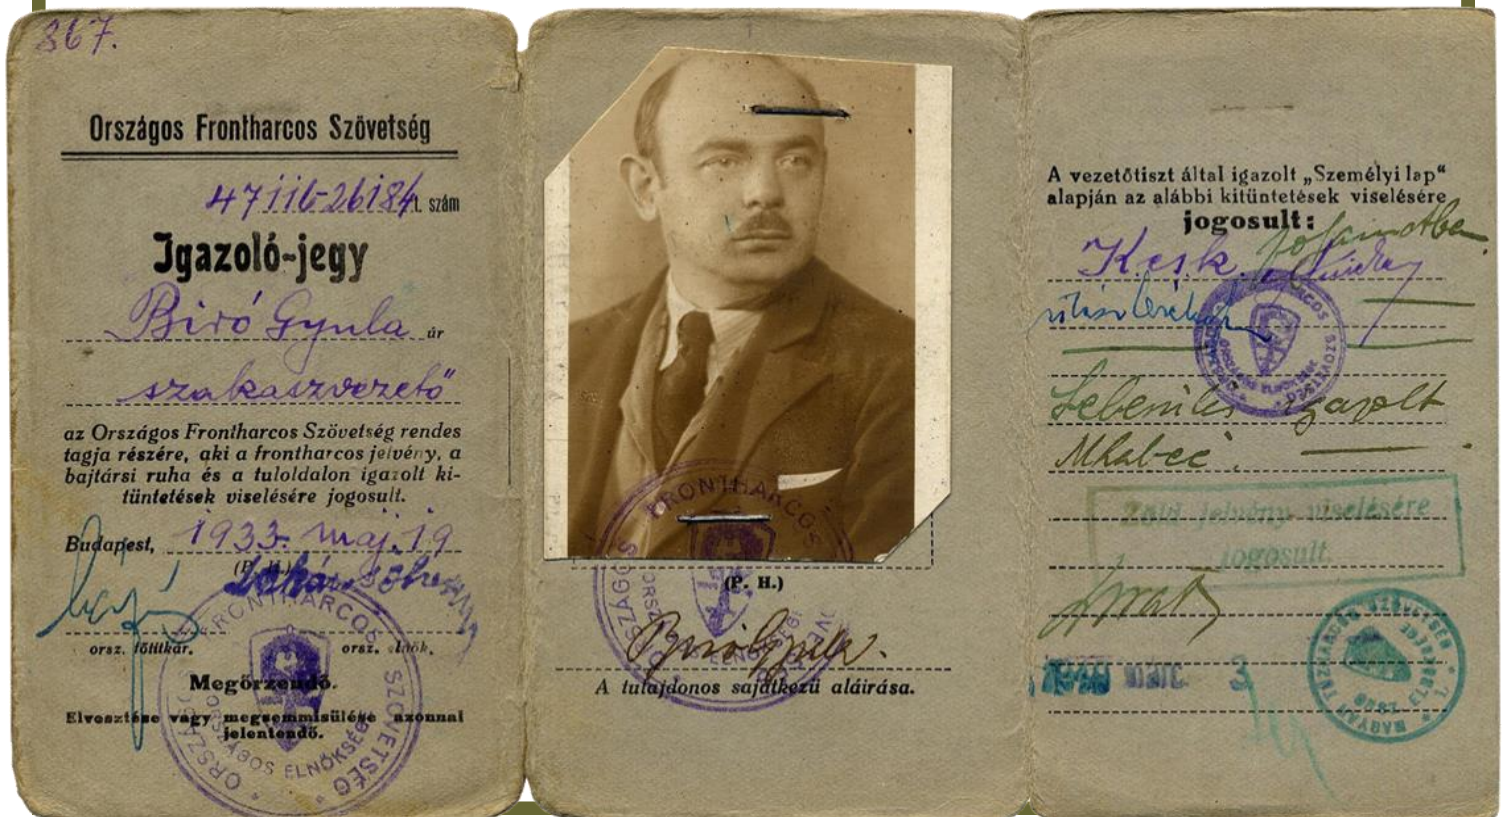 867.
Országos Frontharcos Szövetség
47116-26184 t. szám
Igazoló-jegy
Biró Gyula úr
szakaszvezető
az Országos Frontharcos Szövetség rendes
tagja részére, aki a frontharcos jelvény, a
bajtársi ruha és a tuloldalon igazolt ki-
tüntetések viselésére jogosult.
Budapest, 1933. maj. 19
(P. H.)
orsz. főtitkár. orsz. elnök.
Megőrzendő.
Elvesztése vagy megsemmisülése azonnal
jelentendő.
ORSZÁGOS FRONTHARCOS SZÖVETSÉG
ORSZÁGOS ELNÖKSÉGE
FRONTHARCOS
(P. H.)
Biró Gyula.
A tulajdonos sajátkezü aláirása.
A vezetőtiszt által igazolt „Személyi lap“
alapján az alábbi kitüntetések viselésére
jogosult:
K.cs.k.
igazolt
Zöld jelvény viselésére
jogosult.
1940 márc. 3